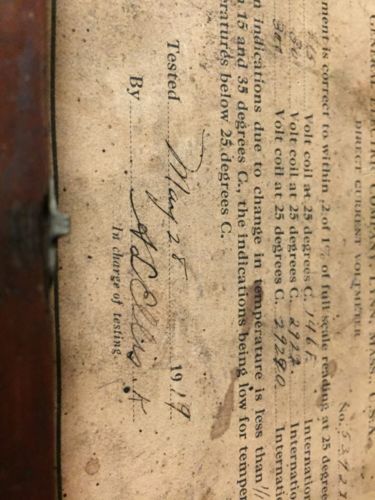 GENERAL ELECTRIC COMPANY, LYNN, MASS., U.S.A.
DIRECT CURRENT VOLTMETER
No.
ment is correct to within .2 of 1% of full scale reading at 25 degree
Volt coil at 25 degrees C. Internation
30 Volt coil at 25 degrees C. 2928 Internatio
300 Volt coil at 25 degrees C. 29280 Internati
n indications due to change in temperature is less than
n 15 and 35 degrees C., the indications being low for temper
ratures below 25 degrees C.
Tested May 28 1919
By
In charge of testing.